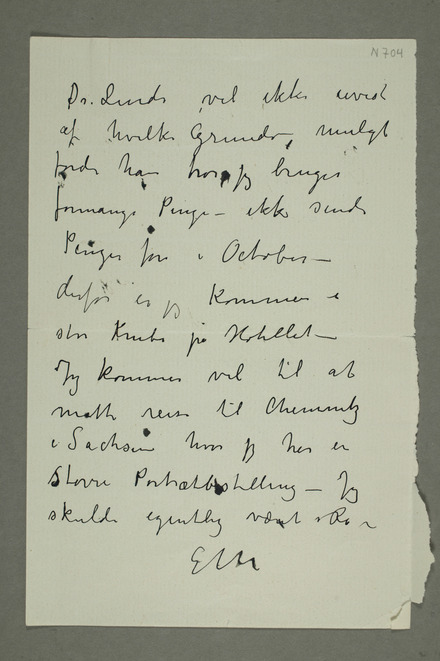 N 704
Dr. Linde vil ikke uvist
af hvilke Grunde, muligt
fordi han tror jeg bruger
formange Penge – ikke sende
Penger før i October –
derfor er jeg kommen i
stor Knibe på Hotellet –
Jeg kommer vel til at
måtte reise til Chemnitz
i Sachsen hvor jeg har en
større Portrætbestilling – Jeg
skulde egentlig været